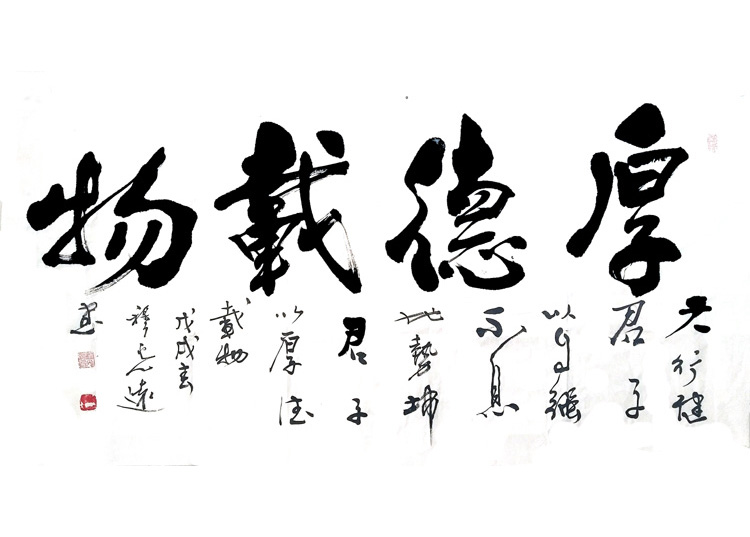 厚德載物
天行健
君子
以自強
不息
地勢坤
君子
以厚德
載物
戊戌
遠
書